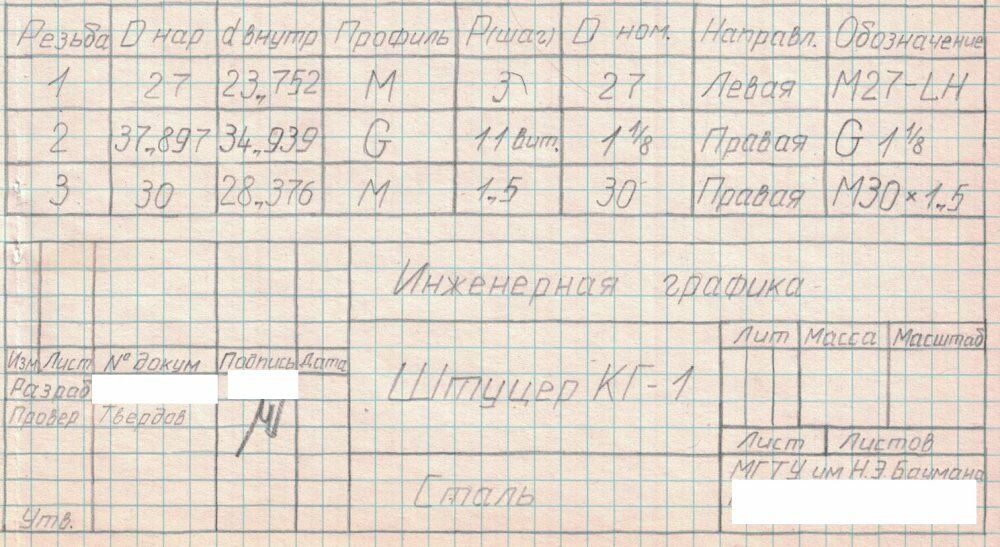 Резьба D нар d внутр Профиль P(шаг) D ном. Направл. Обозначение
1 27 23,752 М 3 27 Левая М27-LH
2 37,897 34,939 G 11 вит. 1 1/8 Правая G 1 1/8
3 30 28,376 М 1,5 30 Правая М30×1,5
Инженерная графика
Лит Масса Масштаб
Изм Лист № докум Подпись Дата
Штуцер КГ-1
Разраб
Провер Твердов
Лист Листов
МГТУ им Н.Э.Баумана
Сталь
Утв.